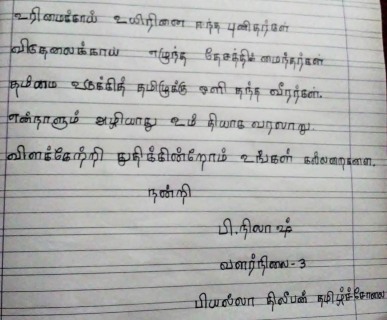 உரிமைக்காய் உயிரினை தந்த புனிதர்கள்
விடுதலைக்காய் எழுந்த தேசத்தின் மைந்தர்கள்
தம்மை உருக்கித் தமிழுக்கு ஒளி தந்த வீரர்கள்.
என்நாளும் அழியாது உம் தியாக வரலாறு.
விளக்கேற்றி துதிக்கின்றோம் உங்கள் கல்லறைகளை.
நன்றி
பி.நிலாஷ்
வளர்நிலை-3
பியல்லா திலீபன் தமிழ்ச்சோலை